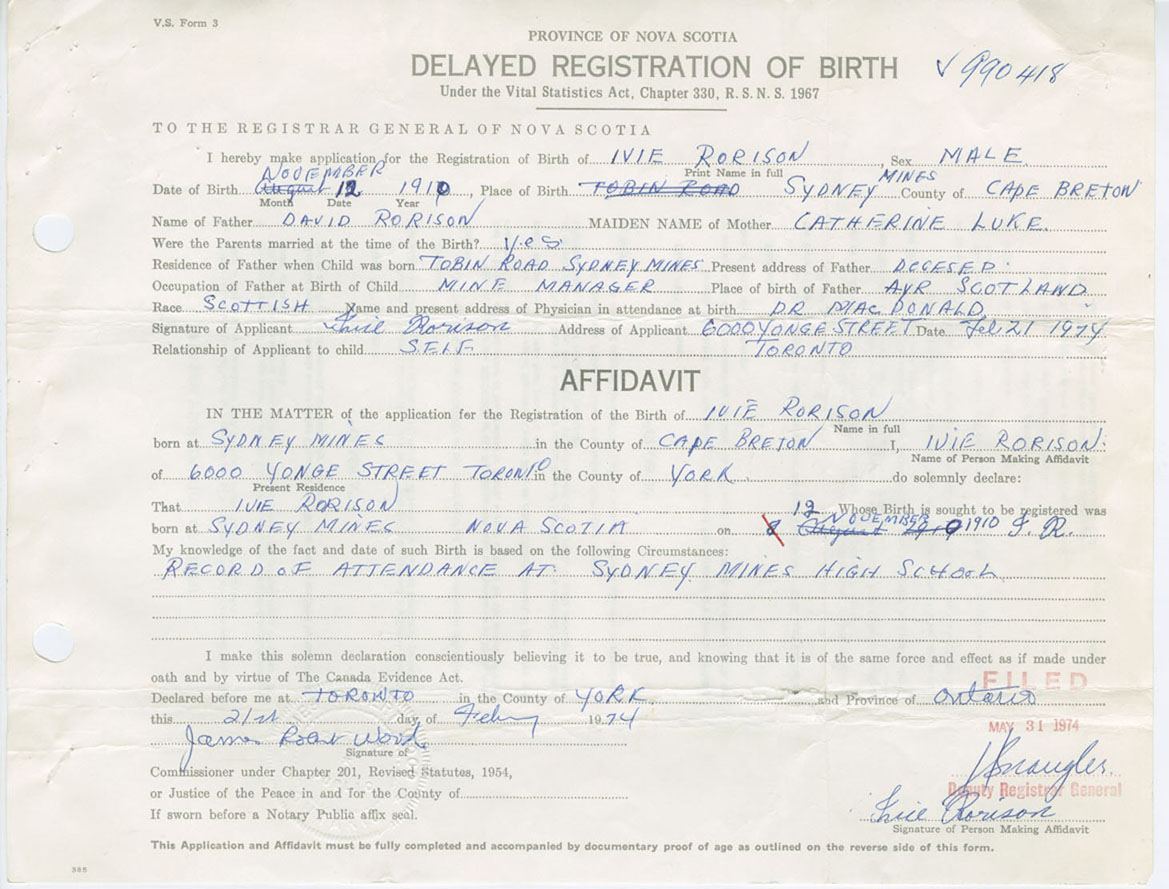 V.S. Form 3
PROVINCE OF NOVA SCOTIA
DELAYED REGISTRATION OF BIRTH √990418
Under the Vital Statistics Act, Chapter 330, R.S.N.S. 1967
TO THE REGISTRAR GENERAL OF NOVA SCOTIA
I hereby make application for the Registration of Birth of IVIE RORISON Sex MALE
Print Name in full
NOVEMBER MINES
Date of Birth August 12 1910, Place of Birth TOBIN ROAD SYDNEY County of CAPE BRETON
Month Date Year
Name of Father DAVID RORISON MAIDEN NAME of Mother CATHERINE LUKE.
Were the Parents married at the time of the Birth? Yes
Residence of Father when Child was born TOBIN ROAD SYDNEY MINES Present address of Father DCCESED.
Occupation of Father at Birth of Child MINE MANAGER Place of birth of Father AYR SCOTLAND
Race SCOTTISH Name and present address of Physician in attendance at birth DR MACDONALD
Signature of Applicant Ivie Rorison Address of Applicant 6000 YONGE STREET Date Feb 21 1974
Relationship of Applicant to child SELF TORONTO
AFFIDAVIT
IN THE MATTER of the application for the Registration of the Birth of IVIE RORISON
Name in full
born at SYDNEY MINES in the County of CAPE BRETON I, IVIE RORISON.
Name of Person Making Affidavit
of 6000 YONGE STREET TORONTO in the County of YORK do solemnly declare:
Present Residence
That IVIE RORISON 12 Whose Birth is sought to be registered was
NOVEMBER
born at SYDNEY MINES NOVA SCOTIA on August 1910 I.R.
My knowledge of the fact and date of such Birth is based on the following Circumstances:
RECORD OF ATTENDANCE AT SYDNEY MINES HIGH SCHOOL
I make this solemn declaration conscientiously believing it to be true, and knowing that it is of the same force and effect as if made under
oath and by virtue of The Canada Evidence Act.
FILED
Declared before me at TORONTO in the County of YORK and Province of Ontario
this 21st day of Feby 1974
MAY 31 1974
James Robert Wood
Signature of
Commissioner under Chapter 201, Revised Statutes, 1954,
or Justice of the Peace in and for the County of
Deputy Registrar General
If sworn before a Notary Public affix seal.
Ivie Rorison
Signature of Person Making Affidavit
This Application and Affidavit must be fully completed and accompanied by documentary proof of age as outlined on the reverse side of this form.
385